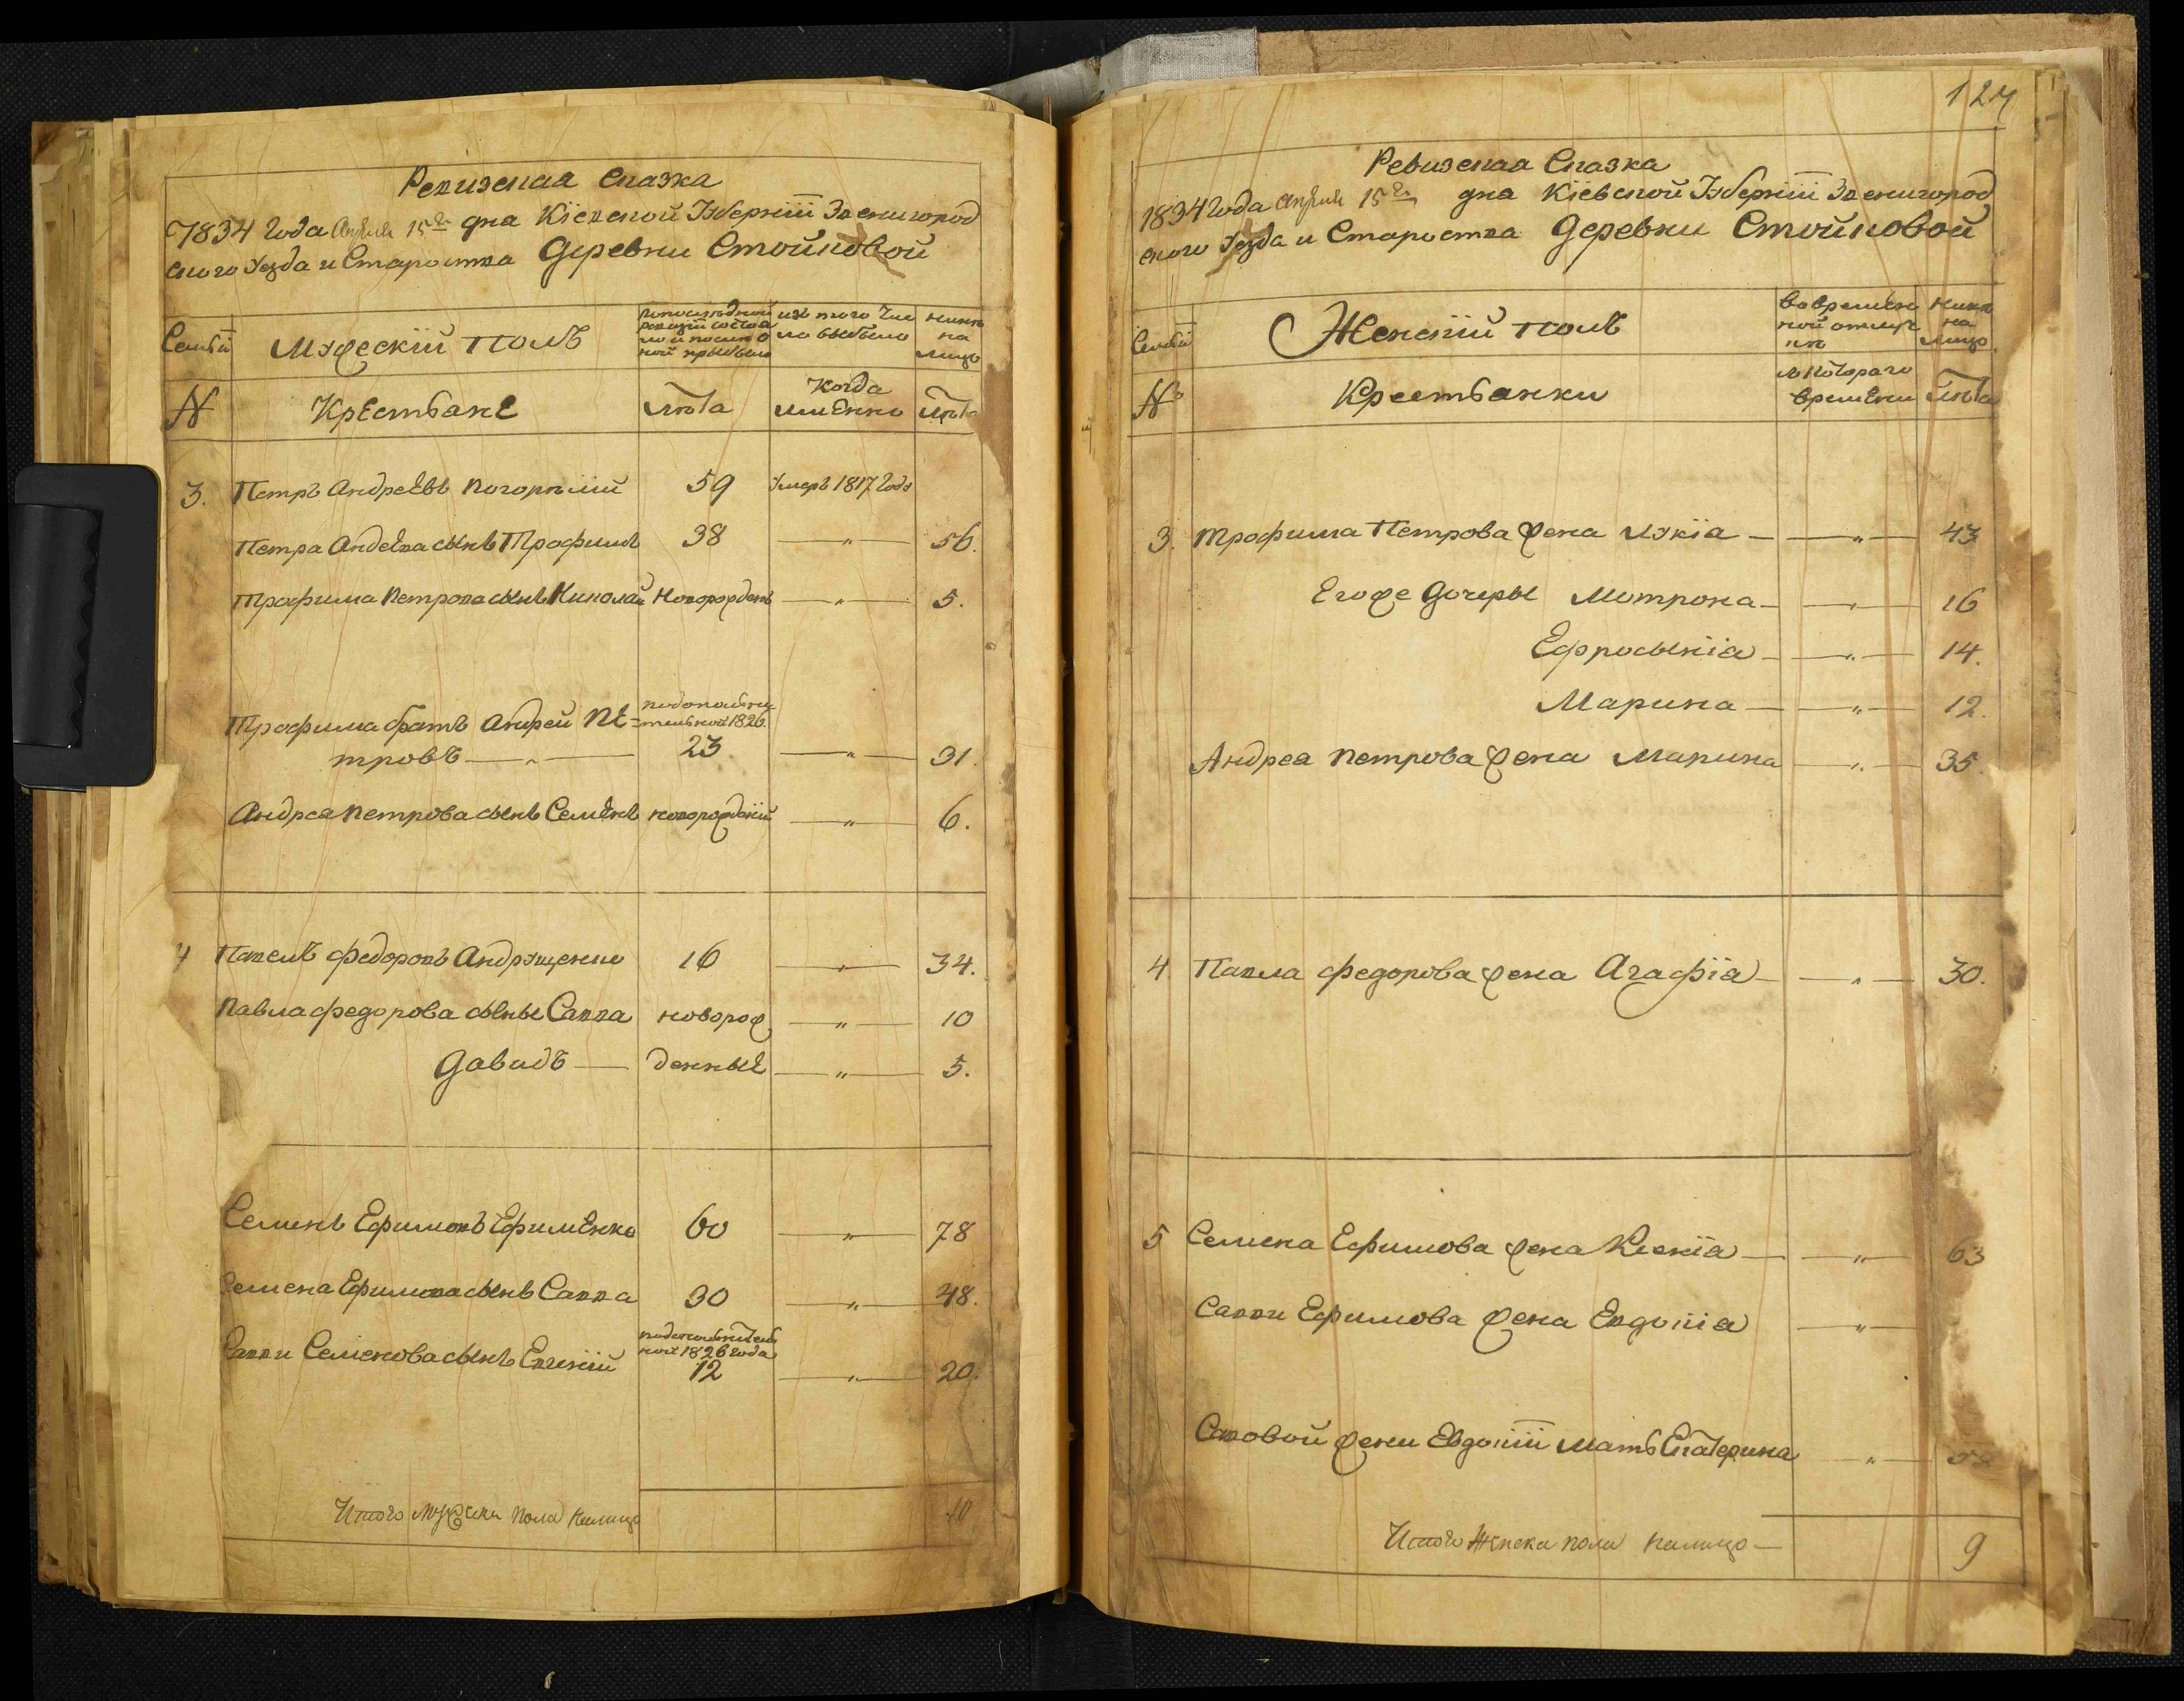 Ревизская Сказка
1834 года Апреля 15го дна Кіевской Губерніи Звенигород
ского Уезда и Староства Деревни Стойковой
Семьи
Мужескій полъ
По последней ревизіи состояло и после оной прибыло
изъ того числа выбыло
ныне на лицо
№
Крестьане
лета
когда именно
лета
3. Петръ Андреевъ Погорелій 59 Умеръ 1817 года
Петра Андеева сынъ Трофимъ 38 — " — 56.
Трофима Петрова сынъ Николай Новорожденъ — " — 5.
Трофима братъ Андрей Пе- подополни
тровъ — " — тельной 1826. 23 — " — 31.
Андреа Петрова сынъ Семенъ новорожденій — " — 6.
4 Павелъ Федоровъ Андрущенко 16 — " — 34.
Павла Федорова сыны Савва новорож — " — 10
Давидъ — денные — " — 5.
Семенъ Ефимовъ Ефименко 60 — " — 78
Семена Ефимова сынъ Савва 30 — " — 48.
Саввы Семенова сынъ Евгеній подополнитель
ной 1826 года
12 — " — 20.
Итого мужска пола налицо 10
124
Ревизская Сказка
1834 года Апреля 15го дна Кіевской Губерніи Звенигород
ского Уезда и Староства Деревни Стойковой
Семьи
Женскій полъ
Во времен
ной отлуч
ке
Ныне
на
лицо
№
Крестьанки
с котораго
времени
лета
3. Трофима Петрова жена Лукіа — — " — 43
Егоже дочеры Мотрона — — " — 16
Ефросыніа — — " — 14.
Марина — — " — 12.
Андреа Петрова жена Марина — " — 35.
4. Павла Федорова жена Агафіа — — " — 30.
5 Семена Ефимова жена Ксеніа — — " — 63
Саввы Ефимова жена Евдокіа — " —
Саввовой жены Евдокіи мать Екатерина — " —
Итого женска пола налицо — 9